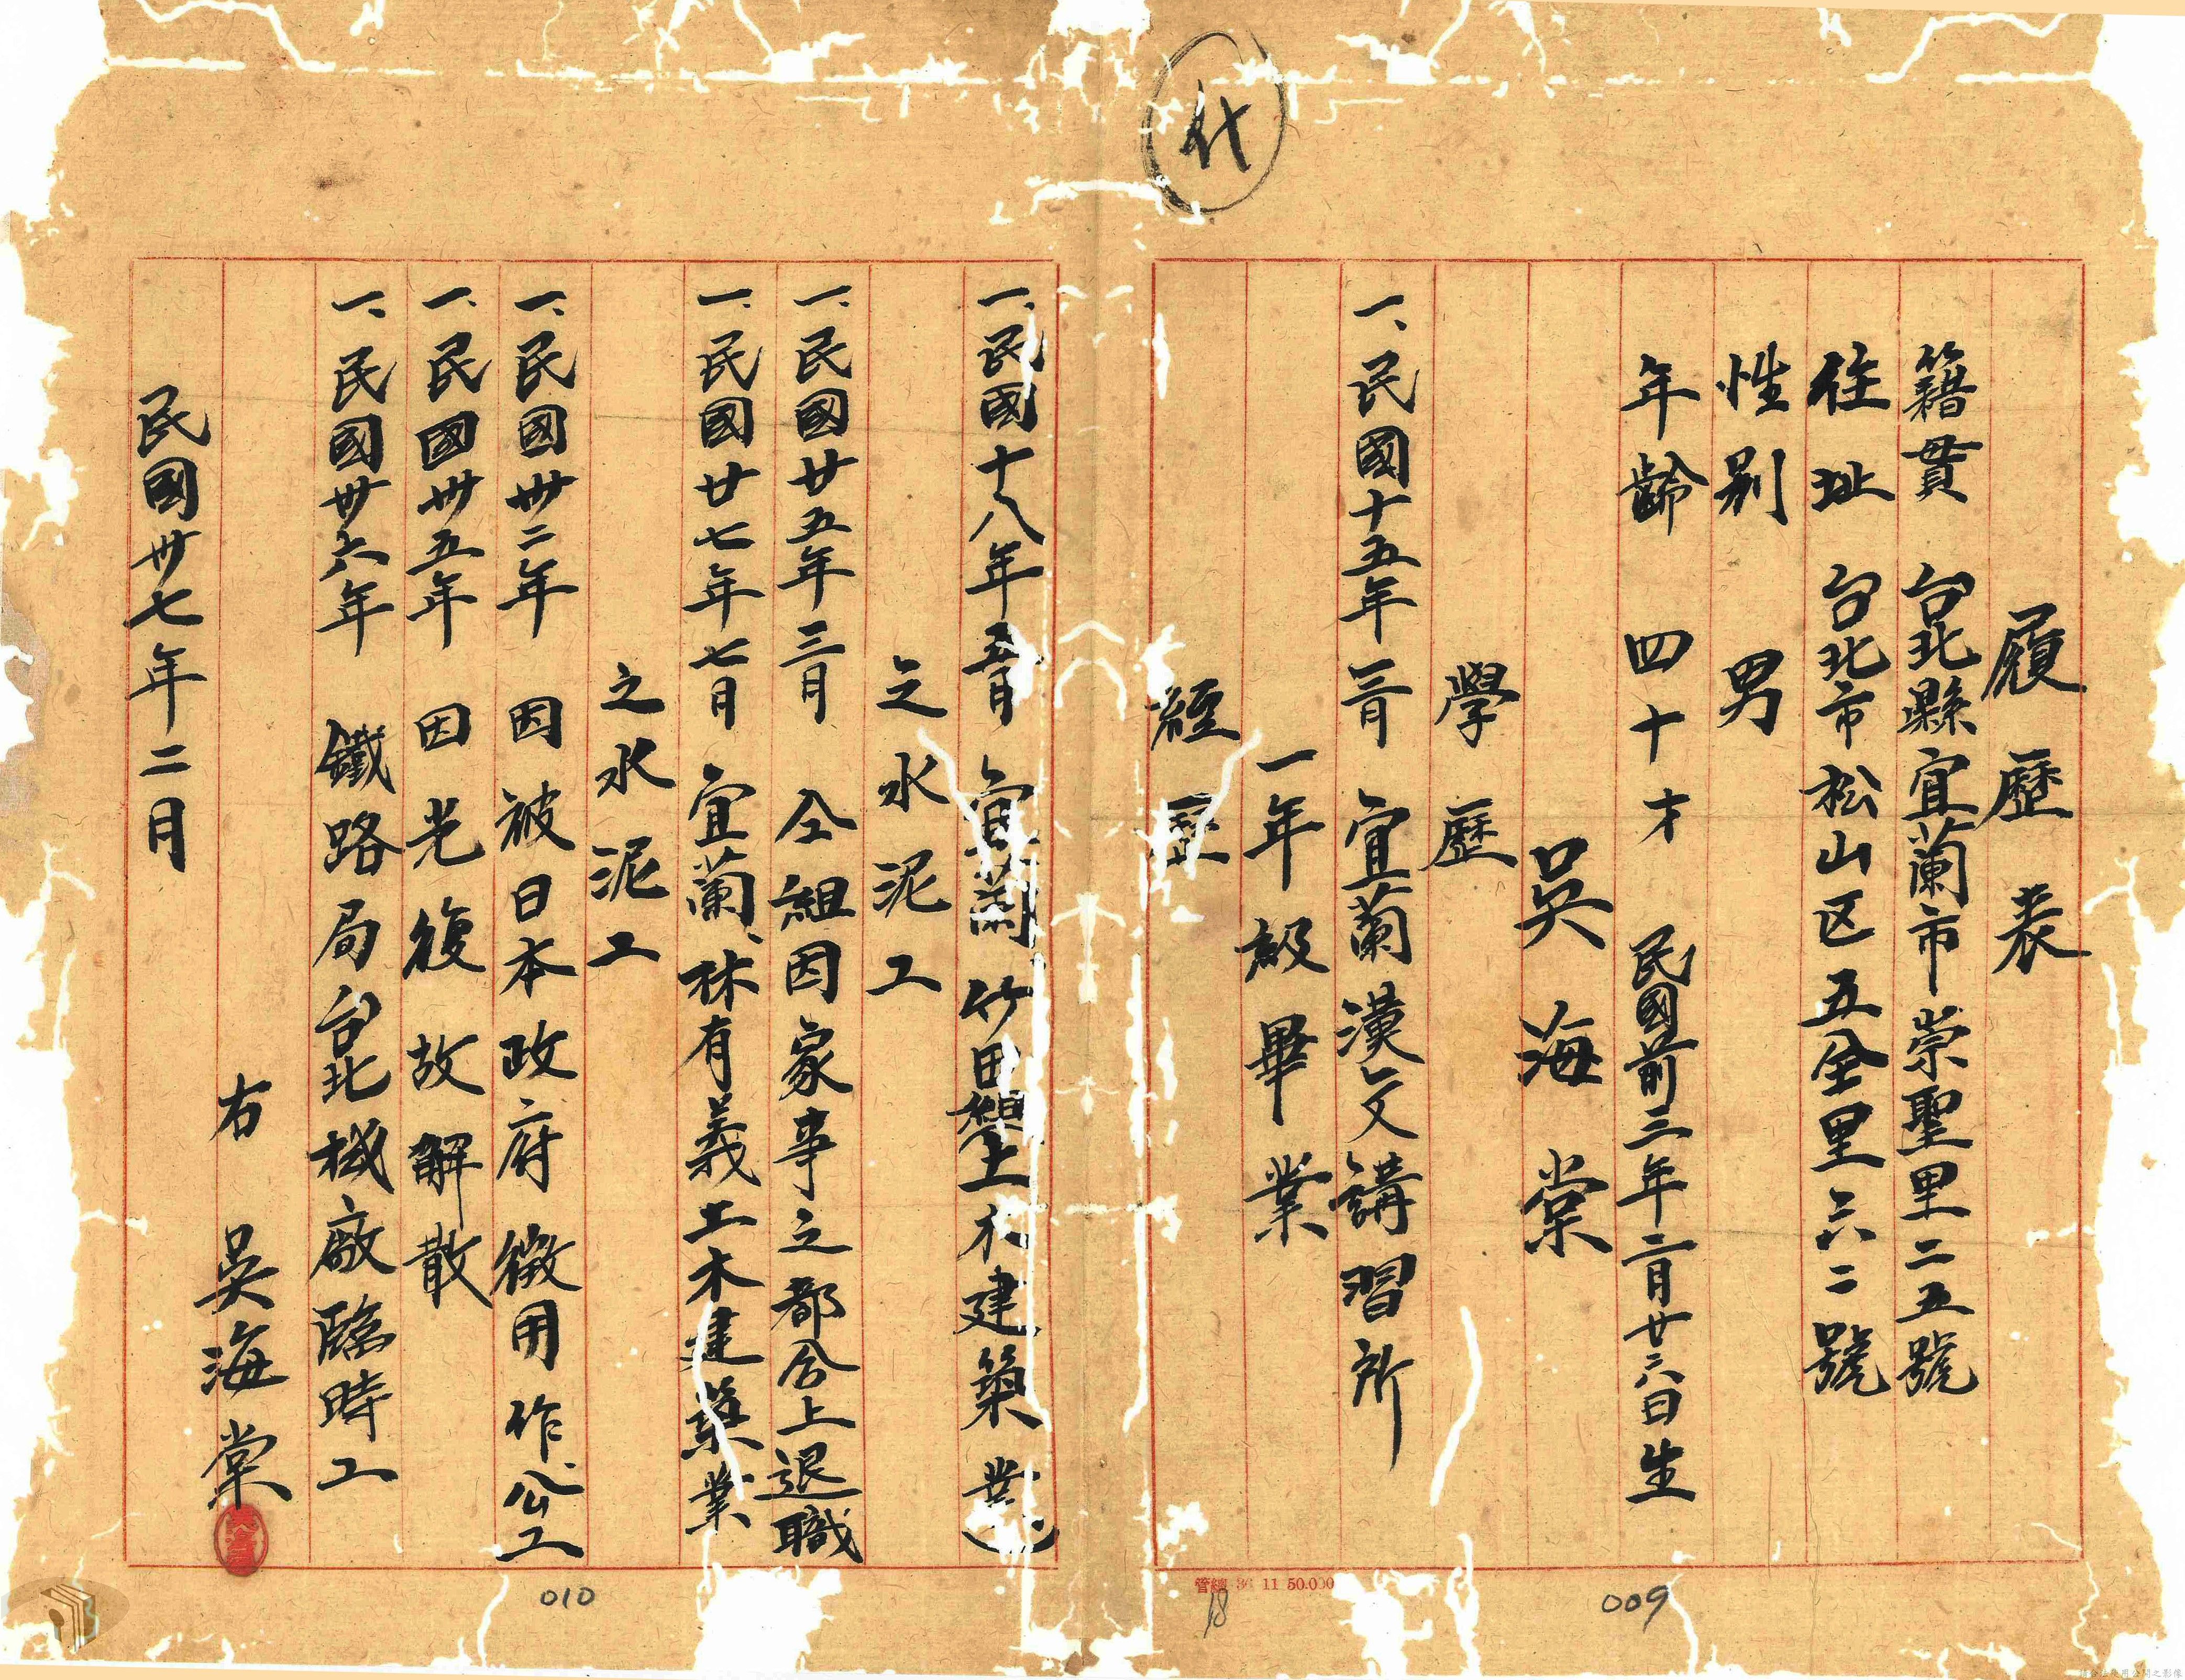 代
履歷表
籍貫 台北縣宜蘭市崇聖里二五號
住址 台北市松山区五全里六二號
性別 男
年齡 四十才 民國前三年二月廿六日生
吳海棠
學歷
一、民國十五年三月 宜蘭漢文講習所
一年級畢業
經歷
一、民國十八年五月 宜蘭竹田組土木建築業
之水泥工
一、民國廿五年三月 仝組因家事之都合上退職
一、民國廿七年七月 宜蘭、林有義土木建築業
之水泥工
一、民國卅二年 因被日本政府徵用作公工
一、民國卅五年 因光復故解散
一、民國卅六年 鐵路局台北機廠臨時工
右 吳海棠
民國卅七年二月
管總 36 11 50.000
18
009
010